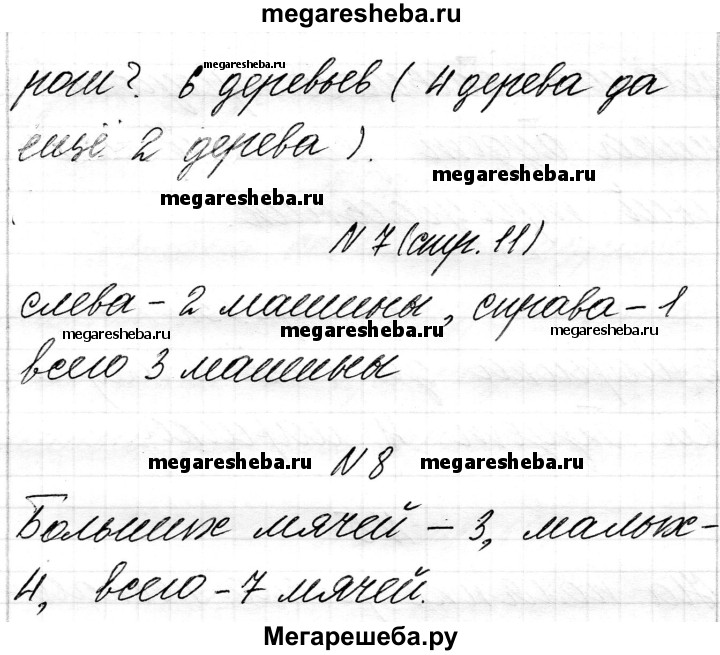 megaresheba.ru
megaresheba.ru
рош? 6 деревьев (4 дерева да
ещё 2 дерева).
megaresheba.ru
megaresheba.ru
N 7 (стр. 11)
слева - 2 машины, справа - 1
megaresheba.ru megaresheba.ru megaresheba.ru
всего 3 машины
megaresheba.ru N 8 megaresheba.ru
Больших мячей - 3, малых -
4, всего - 7 мячей.
Мегарешеба.ру